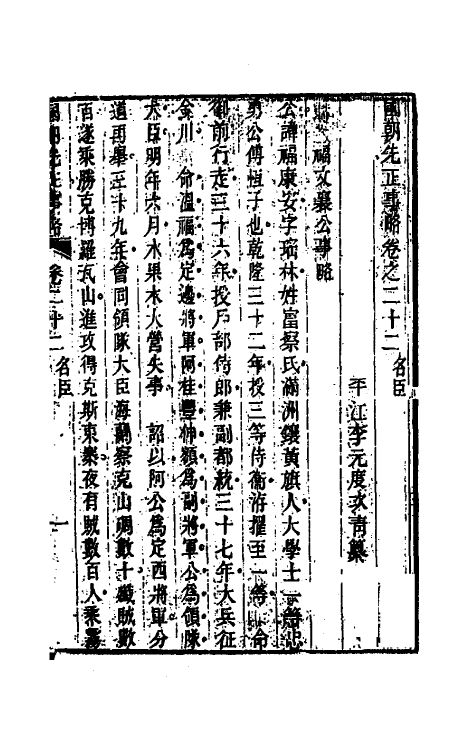 國朝先正事略卷之二十二 名臣
平江李元度次青纂
福文襄公事略
公諱福康安字瑤林姓富察氏滿洲鑲黃旗人大學士一等忠
勇公傅恆子也乾隆三十二年授三等侍衛洊擢至一等 命
御前行走三十六年授戶部侍郎兼副都統三十七年大兵征
金川 命溫福為定邊將軍阿桂豐伸額為副將軍公為領隊
大臣明年六月木果木大營失事 詔以阿公為定西將軍分
道再舉三十九年會同領隊大臣海蘭察克山碉數十殲賊數
百遂乘勝克博羅瓦山進攻得克斯東寨夜有賊數百人乘霧
國朝先正事略 卷二十二 名臣 一